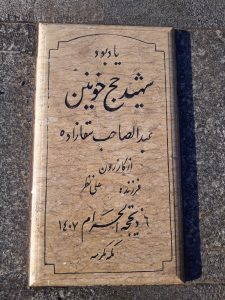 یادبود
شهید حج خونین
عبدالصاحب سقازاده
از کازرون
فرزند علی نظر
۶ ذیحجة الحرام ۱۴۰۷
مکه مکرمه